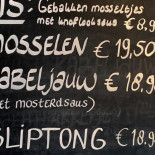 S: Gebakken mosseltjes
met knoflooksaus € 8.9
MOSSELEN € 19,50
ABELJAUW € 18.9
et mosterdsaus)
SLIPTONG € 18.9